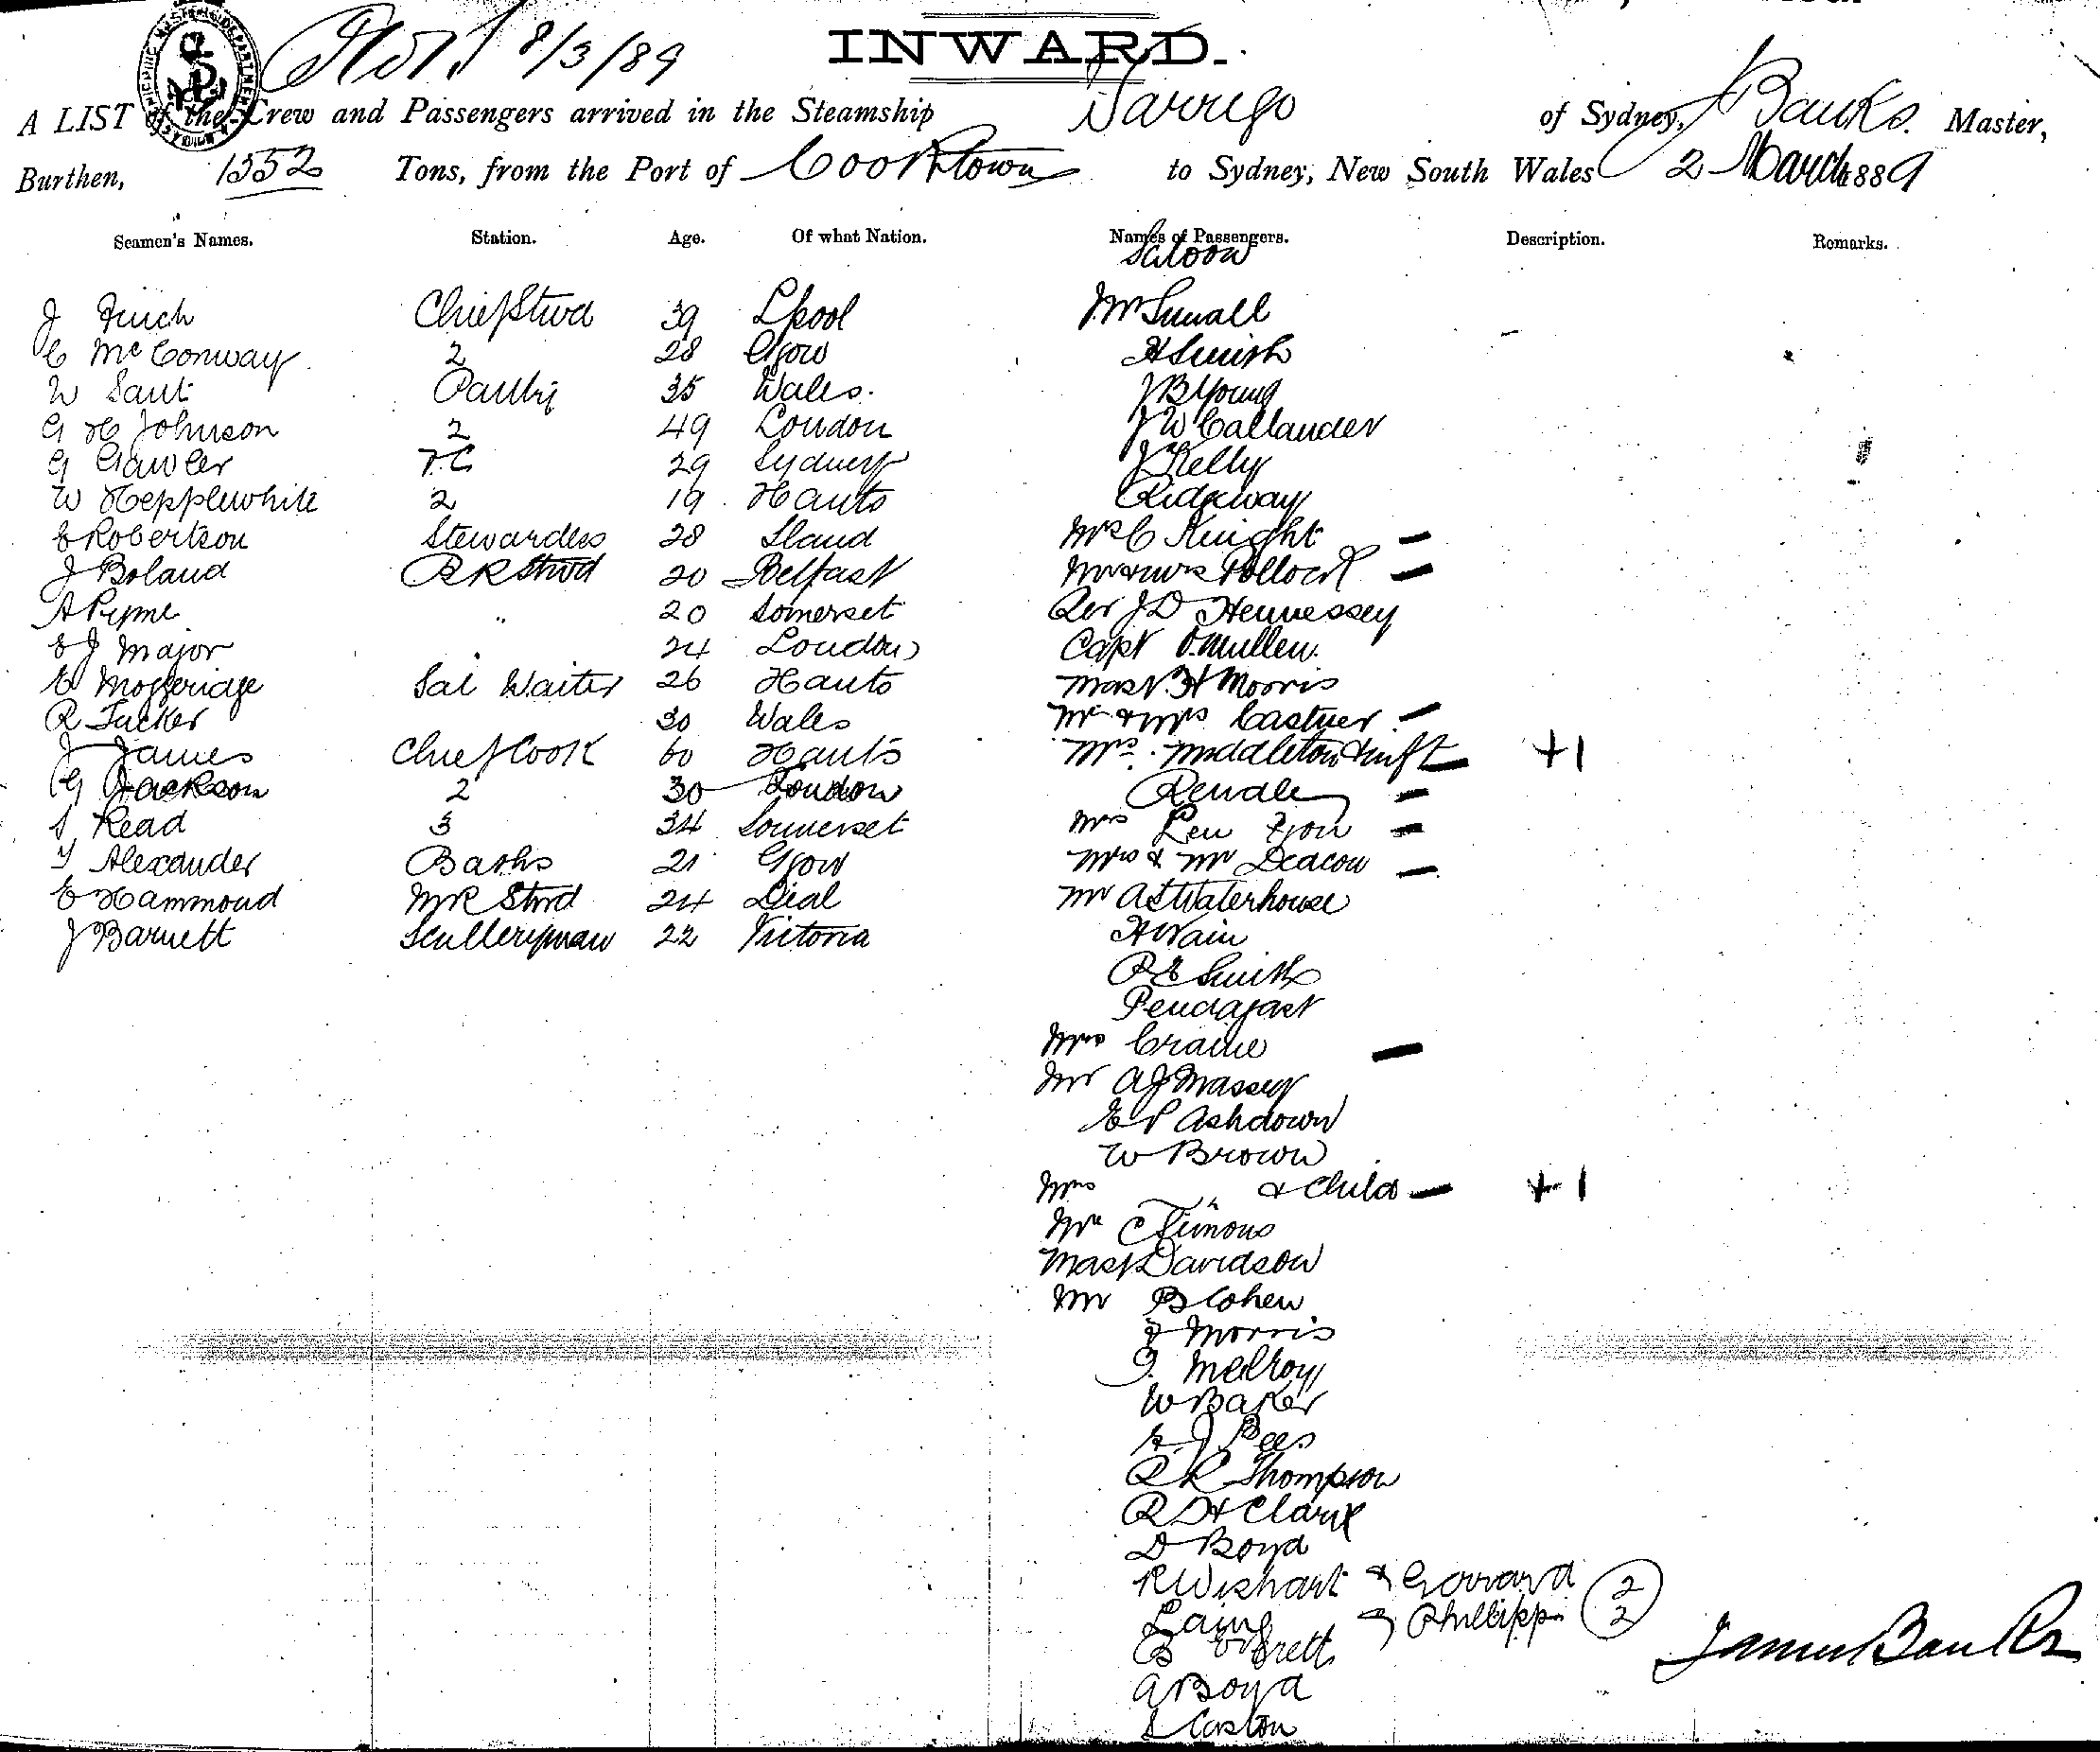 8/3/89
INWARD.
A LIST of the Crew and Passengers arrived in the Steamship Warrego of Sydney, J Banks. Master,
Burthen, 1552 Tons, from the Port of Cooktown to Sydney, New South Wales 2 March 1889
Seamen's Names. Station. Age. Of what Nation. Names of Passengers. Description. Remarks.
Saloon
J Finch Chief Stwd 39 Lpool Mr
C McConway 2 28 Gow H Smith
W 35 Wales. J B Young
G H Johnson 2 49 London J W Callander
G Gawler 29 Sydney J Kelly
W Hepplewhite 2 19 Hants Ridgway
E Robertson Stewardess 28 Mrs C Knight -
J Boland B R Stwd 20 Belfast Mr & Mrs Pollock -
A Pyme " 20 Somerset Rev J D Hennessey
E J Major " 24 London Capt O.Mullen.
E Moggeridge Sal Waiter 26 Hants Mast. H Morris
R Tucker 30 Wales Mr & Mrs Castner -
J James Chief Cook 60 Hants Mrs. Middleton & inft - +1
G Jackson 2 30 London Rendle -
S Read 3 34 Somerset Mrs -
Y Alexander Baths 21 Gow Mrs & Mr Deacon -
E Hammond M R Stwd 24 Dial Mr A S Waterhouse
J Barnett Scullery man 22 Victoria H Wain
R E Smith
Pendagast
Mrs Craine -
Mr A J Massey
E P Ashdown
W Brown
Mrs " & Child - +1
Mr C Simons
Mast Davidson
Mr B Cohen
J Morris
J. McIlroy
W Baker
J Rees
R R Thompson
R D H Clark
D Boyd
R Wishart & Gorrard 2
Laing & Phillipps 2
B Everett
James Banks
A Boyd
S Caston